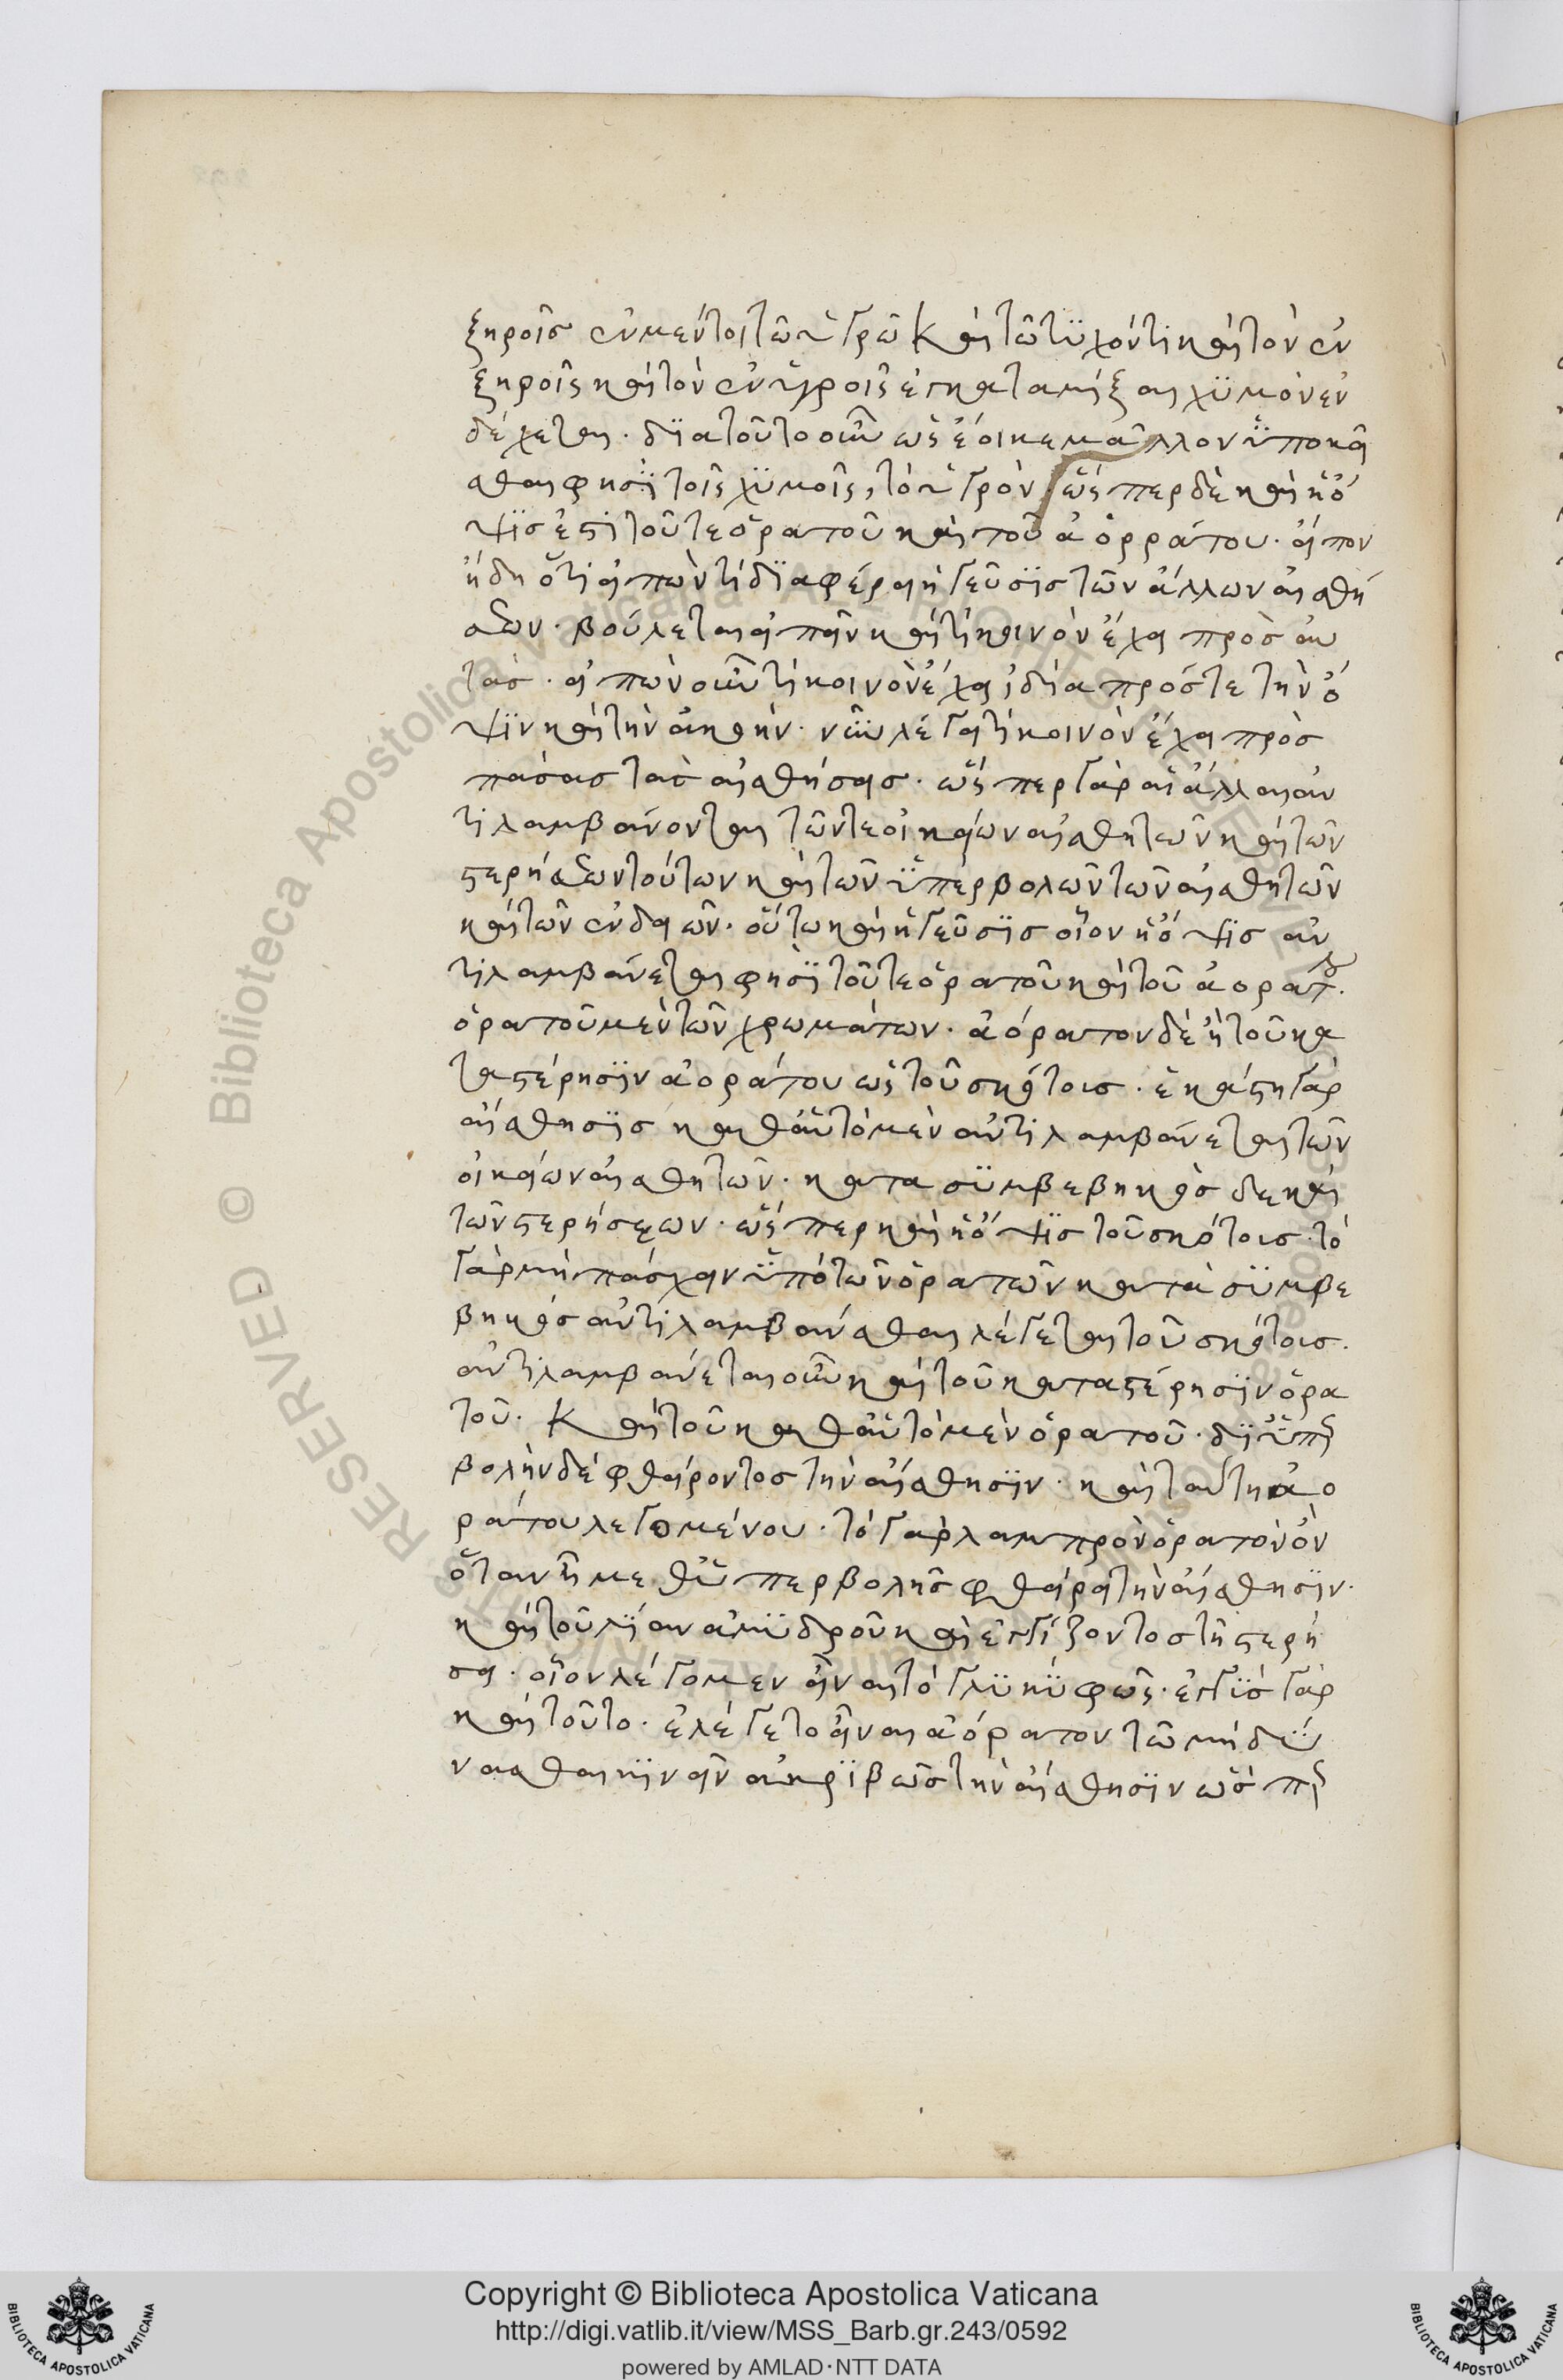 ξηροῖς ἐν μέντοι τῶ ὑγρῶ καὶ τῶ τυχόντι καὶ τὸν ἐν
ξηροῖς καὶ τὸν ἐν ὑγροῖς ἐγκαταμίξαι χυμὸν ἐν
δέχεται. διατοῦτο οὖν ὡς ἔοικε μᾶλλον ὑποκεῖ
σθαι φησὶ τοῖς χυμοῖς, τὸ ὑγρὸν ὥσπερ δὲ καὶ ἡ ὄ
ψις ἐστὶ τοῦ τε ὁρατοῦ καὶ τοῦ ἀορράτου. εἶπον
ἤδη ὅτι εἰπὼν τί διαφέρει ἡ γεῦσις τῶν ἄλλων αἰσθή
σεων. βούλεται εἰπεῖν καὶ τί κοινὸν ἔχει πρὸς αὐ
τάς. εἰπὼν οὖν τί κοινὸν ἔχει ἰδία πρός τε τὴν ὄ
ψιν καὶ τὴν ἀκοήν. νῦν λέγει τί κοινὸν ἔχει πρὸς
πάσας τὰς αἰσθήσεις. ὥσπερ γὰρ αἱ ἄλλαι ἀν
τιλαμβάνονται τῶν τε οἰκείων αἰσθητῶν καὶ τῶν
στερήσεων τούτων καὶ τῶν ὑπερβολῶν τῶν αἰσθητῶν
καὶ τῶν ἐνδειῶν. οὕτω καὶ ἡ γεῦσις οἷον ἡ ὄψις ἀν
τιλαμβάνεται φησὶ τοῦ τε ὁρατοῦ καὶ τοῦ ἀοράτου.
ὁρατοῦ μὲν τῶν χρωμάτων. ἀόρατον δὲ ἢ τοῦ κα
τα στέρησιν ἀοράτου ὡς τοῦ σκότους. ἑκάστη γὰρ
αἴσθησις καθαὑτὸ μὲν ἀντιλαμβάνεται τῶν
οἰκείων αἰσθητῶν. κατα συμβεβηκὸς δε καὶ
τῶν στερήσεων. ὥσπερ καὶ ἡ ὄψις τοῦ σκότους. τὸ
γὰρ μὴ πάσχειν ὑπὸ τῶν ὁρατῶν κατὰ συμβε
βηκὸς ἀντιλαμβάνεσθαι λέγεται τοῦ σκότους.
ἀντιλαμβάνεται οὖν καὶ τοῦ κατα στέρησιν ὁρα
τοῦ. καὶ τοῦ καθαὑτὸ μὲν ὁρατοῦ. δι ὑπερ
βολὴν δὲ φθείροντος τὴν αἴσθησιν. καὶ ταύτη ἀο
ράτου λεγομένου. τὸ γὰρ λαμπρὸν ὁρατὸν ὂν
ὅταν ἦ μεθ ὑπερβολῆς φθείρει τὴν αἴσθησιν.
καὶ τοῦ λίαν ἀμυδροῦ καὶ ἐγγίζοντος τῆ στερή
σει. οἷον λέγομεν εἶναι τὸ γλυκὺ φῶς. ἐγγὺς γὰρ
καὶ τοῦτο. ἐλέγετο εἶναι ἀόρατον τῶ μὴ δύ
νασθαι κινεῖν ἀκριβῶς τὴν αἴσθησιν ὥσπερ
Copyright © Biblioteca Apostolica Vaticana
http://digi.vatlib.it/view/MSS_Barb.gr.243/0592
powered by AMLAD·NTT DATA